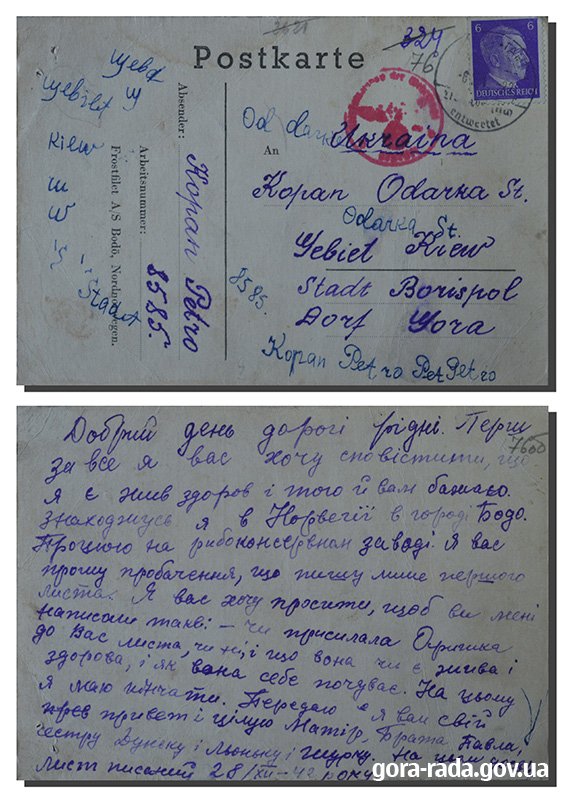 324
76
Postkarte
6 6
DEUTSCHES REICH
entwertet
Absender:
Kopan Petro
Arbeitsnummer:
8585.
Frostfilet A/S Bodö, Nordnorwegen.
An
Ukraina
Kopan Odarka St.
Odarka St.
Gebiet Kiew
Stadt Borispol
Dorf Gora
Kopan Petro Pet Petro
8585.
Kiew
Stadt
7600
Добрий день дорогі рідні. Перш
за все я вас хочу сповістити, що
я є жив здоров і того й вам бажаю.
Знаходжусь я в Норвегії в городі Бодо.
Працюю на рибоконсервнам заводі. Я вас
прошу пробачення, що пишу лише першого
листа. Я вас хочу просити, щоб ви мені
написали такві: - чи присилала Оришка
до Вас листа, чи ні, і що вона чи є жива і
здорова, і як вона себе почуває. На цьому
я маю кінчати. Передаю я вам свій
привет і цілую Матір, Брата Павла,
сестру Дунєку і Льоньку і Шурку. На
лист писаний 28/XII-42 року
gora-rada.gov.ua